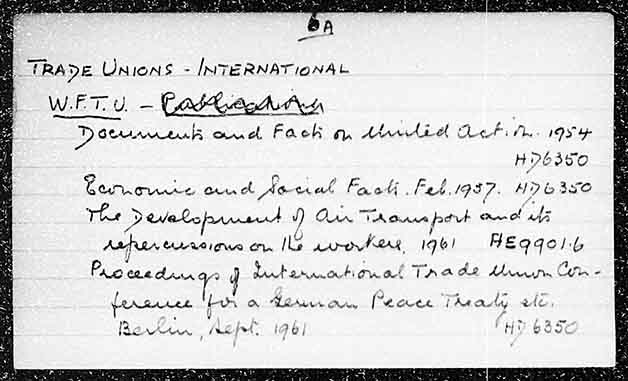 6A
TRADE UNIONS - INTERNATIONAL
W.F.T.U. - Publications
Documents and Facts on United Action. 1954
HD6350
Economic and Social Facts. Feb. 1957. HD6350
The Development of Air Transport and its
repercussions on the workers. 1961 HE9901.6
Proceedings of International Trade Union Con-
ference for a German Peace Treaty etc.
Berlin, Sept. 1961 HD6350